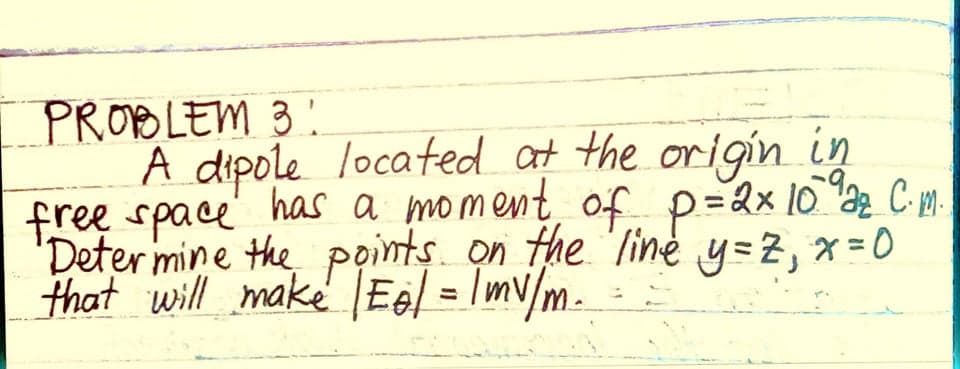 PROBLEM 3:
A dipole located at the origin in
free space has a moment of p=2×10⁻⁹az C.m.
Determine the points on the line y=z, x=0
that will make |Eθ| = 1mV/m.